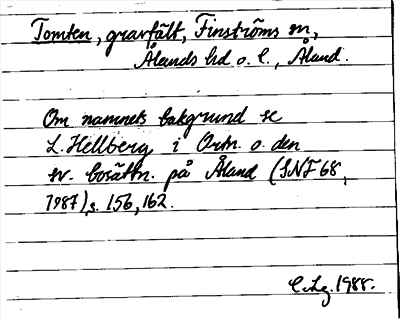 Tomten, gravfält, Finströms sn,
Ålands hd o. l., Åland.
Om namnets bakgrund se
L. Hellberg i Ortn. o. den
sv. bosättn. på Åland (SNF 68,
1987), s. 156, 162.
1988.